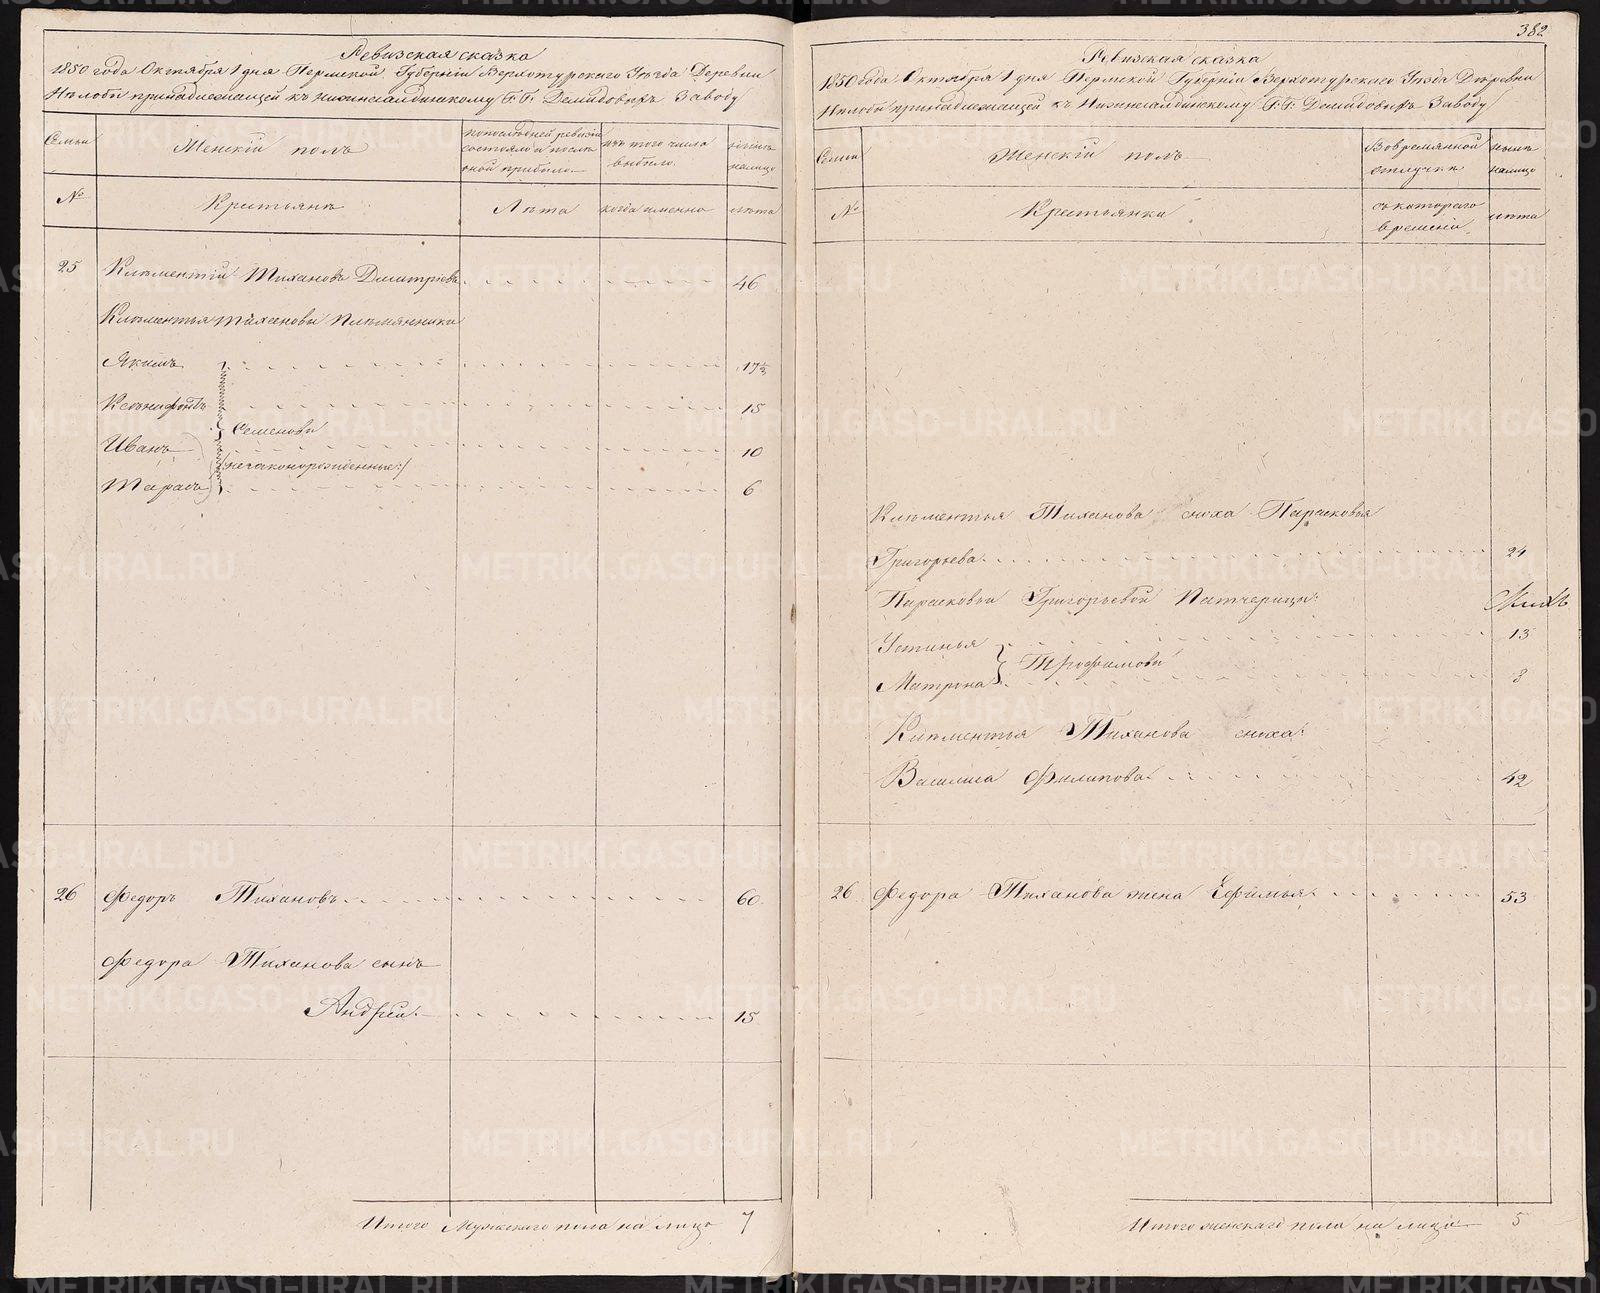 Ревизская сказка
1850 года Октября 1 дня Пермской Губернии Верхотурскаго Уѣзда Деревни
Нѣлобы принадлежащей къ Нижнесалдинскому Г.Г. Демидовыхъ Заводу
Семьи
Менскій полъ
По послѣдней ревизіи состояло и послѣ оной прибыло
изъ того числа выбыло
нынѣ налицо
№
Крестьянѣ
Лѣта
когда именно
лѣта
25 Клѣментій Тихановъ Дмитріевъ 46
Клѣментья Тиханова Плѣмянники
Якимъ 17 1/2
Ксенифонтъ 15
Семеновы
Иванъ 10
/незаконорожденные:/
Тарасъ 6
26 Федоръ Тихановъ 60
Федора Тиханова сынъ
Андрей 15
Итого Мужскаго пола на лицо 7
382
Ревизская сказка
1850 года Октября 1 дня Пермской Губерніи Верхотурскаго Уѣзда Деревни
Нѣлобы принадлежащей къ Нижнесалдинскому Г.Г. Демидовыхъ Заводу
Семьи
Женскій полъ
Во врѣмянной отлучкѣ
нынѣ налицо
№
Крестьянки
съ котораго времени
лѣта
Клѣментья Тиханова сноха Парасковья
Григорьева 24
Парасковьи Григорьевой Патчерицы:
Устинья 13
Трофимовы
Матрона 8
Клѣментья Тиханова сноха:
Василиса Филипова 42
26 Федора Тиханова жена Ефимья 53
Итого женскаго пола на лицо 5
METRIKI.GASO-URAL.RU